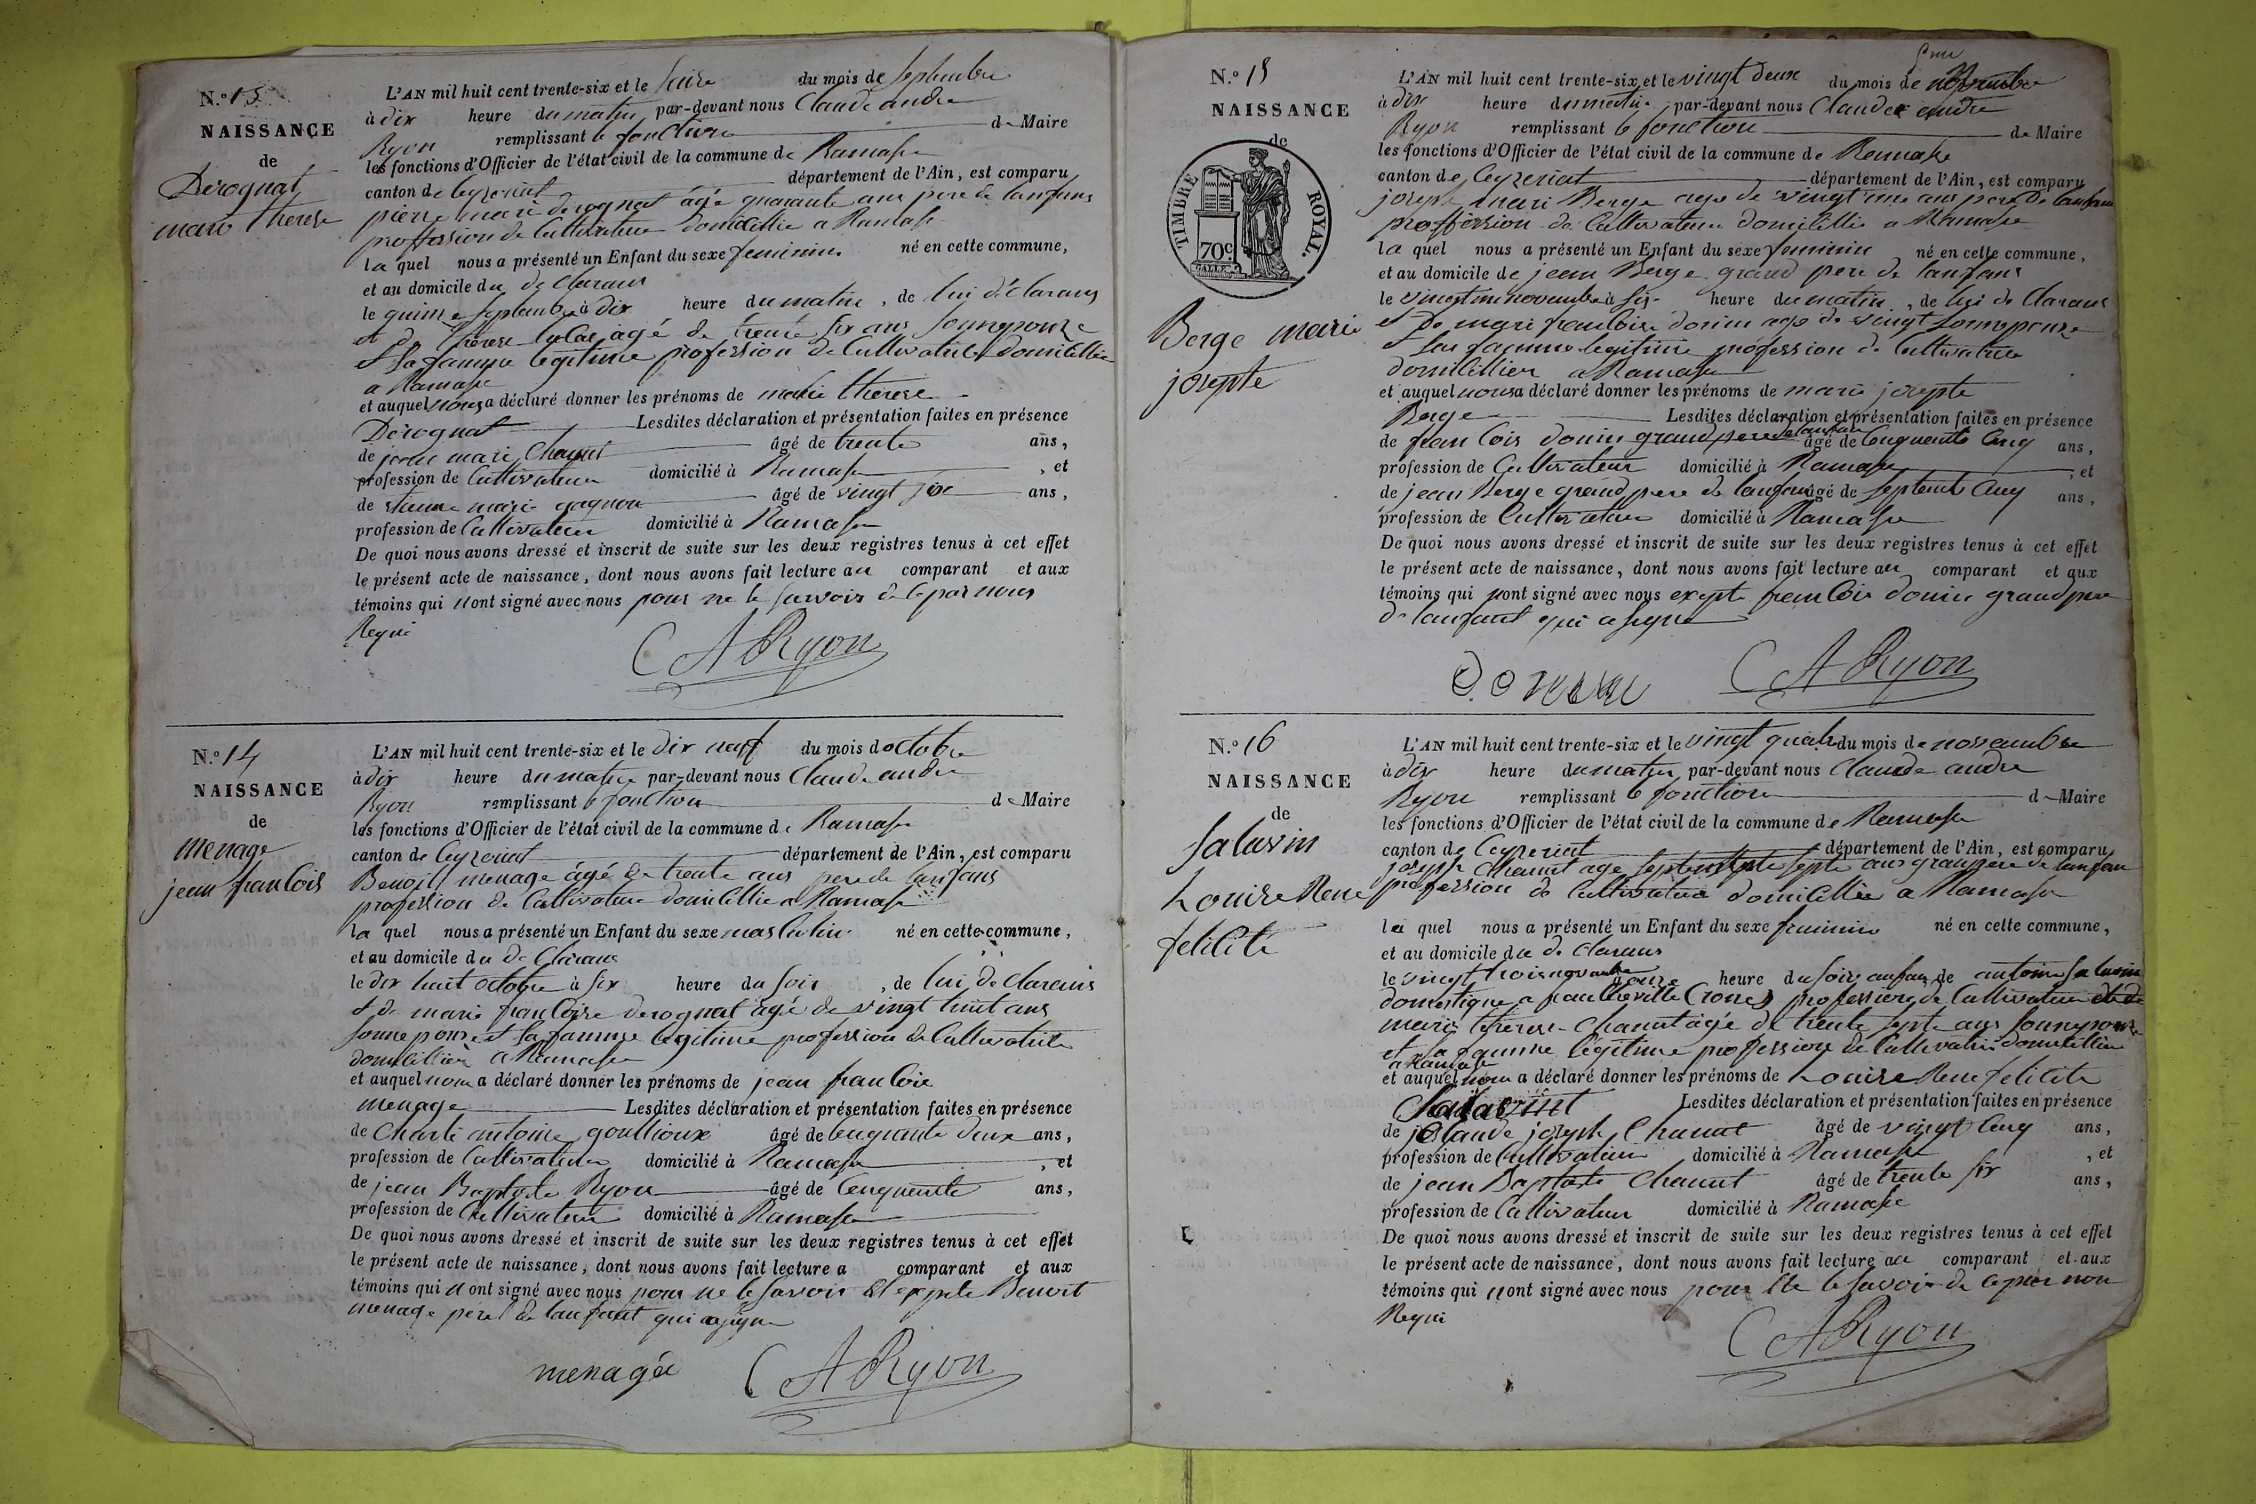 N.º 13
NAISSANCE
de
Derognat
marie therese
L'AN mil huit cent trente-six et le seize du mois de septembre
à dix heure du matin par-devant nous Claude andre
Ryon remplissant le fonction de Maire
les fonctions d'Officier de l'état civil de la commune de Ramasse
canton de Ceyzeriat département de l'Ain, est comparu
pierre marie derognat âgé quarante ans pere de lanfans
proffession de Cultivateur domicillie a Ramasse
la quel nous a présenté un Enfant du sexe feminin né en cette commune,
et au domicile du de Clarans
le quinze septembre à dix heure du matin, de lui déclarans
et de therese agé de trente six ans sonneponze
et sa famme legitime profession de Cultivatrice domicillié
a Ramasse
et auquel nous a déclaré donner les prénoms de marie therese
Derognat Lesdites déclaration et présentation faites en présence
de jean marie Chanut âgé de trente ans,
profession de Cultivateur domicilié à Ramasse, et
de marie gagnon âgé de vingt six ans,
profession de Cultivateur domicilié à Ramasse
De quoi nous avons dressé et inscrit de suite sur les deux registres tenus à cet effet
le présent acte de naissance, dont nous avons fait lecture au comparant et aux
témoins qui nont signé avec nous pour ne le savoir de le par nous
Requi
CARyon
N.º 14
NAISSANCE
de
menage
jean francois
L'AN mil huit cent trente-six et le dix neuf du mois doctobre
à dix heure du matin par-devant nous Claude andre
Ryon remplissant le fonction de Maire
les fonctions d'Officier de l'état civil de la commune de Ramasse
canton de Ceyzeriat département de l'Ain, est comparu
Benoit menage âgé de trente ans pere de lanfans
profession de Cultivateur domicillie a Ramasse
la quel nous a présenté un Enfant du sexe masculin né en cette commune,
et au domicile du de Clarans
le dix huit octobre à six heure du soir, de lui de clarans
et de marie francoise derognat âgé de vingt huit ans
sonne ponze et sa famme legitime profession de Cultivatrice
domicillier a Ramasse
et auquel nous a déclaré donner les prénoms de jean francois
menage Lesdites déclaration et présentation faites en présence
de Charle antoine goullioux âgé de cenquante deux ans,
profession de Cultivateur domicilié à Ramasse, et
de jean Baptiste Ryon âgé de Cenquante ans,
profession de Cultivateur domicilié à Ramasse
De quoi nous avons dressé et inscrit de suite sur les deux registres tenus à cet effet
le présent acte de naissance, dont nous avons fait lecture a comparant et aux
témoins qui n ont signé avec nous pour ne le savoir et exepte Benoit
menage pere de lanfant qui a signe
menage CARyon
N.º 15
NAISSANCE
de
TIMBRE ROYAL.
70c
Berge marie
josepte
L'AN mil huit cent trente-six et le vingt deux du mois de novembre
à dix heure du matin par-devant nous Claude andre
Ryon remplissant le fonction de Maire
les fonctions d'Officier de l'état civil de la commune de Ramasse
canton de Ceyzeriat département de l'Ain, est comparu
joseph marie Berge age de vingt ans pere de lanfan
proffession de Cultivateur domicillie a Ramasse
la quel nous a présenté un Enfant du sexe feminin né en cette commune,
et au domicile de jean Berge grand pere de lanfans
le novembre à six heure du matin, de lui de Clarans
et de marie francoise donin age de vingt sonneponze
et sas famme legitime profession de Cultivatrice
domicillier a Ramasse
et auquel nous a déclaré donner les prénoms de marie josepte
Berge Lesdites déclaration et présentation faites en présence
de francois donin grand pere de lanfan âgé de Cenquente Cinq ans,
profession de Cultivateur domicilié à Ramasse, et
de jean Berge grand pere de lanfan âgé de septente Cinq ans,
profession de Cultivateur domicilié à Ramasse
De quoi nous avons dressé et inscrit de suite sur les deux registres tenus à cet effet
le présent acte de naissance, dont nous avons fait lecture au comparant et aux
témoins qui nont signé avec nous exepte francois donin grand pere
de lanfant qui a signe
CARyon
N.º 16
NAISSANCE
de
Salavin
Louise Rene
felicite
L'AN mil huit cent trente-six et le vingt quatre du mois de novembre
à dix heure du matin par-devant nous Claude andre
Ryon remplissant le fonction de Maire
les fonctions d'Officier de l'état civil de la commune de Ramasse
canton de Ceyzeriat département de l'Ain, est comparu
joseph Chanut age septente septe ans grand pere de lanfan
proffession de Cultivateur domicillie a Ramasse
la quel nous a présenté un Enfant du sexe feminin né en cette commune,
et au domicile du de clarans
le vingt trois novembre à onze heure du soir, anfan de antoine Salavin
domestique a profession de Cultivateur et de
marie therese Chanut âgé de trente septe ans sonneponze
et sa famme légitime profession de Cultivatrice domicillier
a Ramasse
et auquel nous a déclaré donner les prénoms de Louise Rene felicite
Salavint Lesdites déclaration et présentation faites en présence
de Claude joseph Chanut âgé de vingt Cinq ans,
profession de Cultivateur domicilié à Ramasse, et
de jean Baptiste Chanut âgé de trente six ans,
profession de Cultivateur domicilié à Ramasse
De quoi nous avons dressé et inscrit de suite sur les deux registres tenus à cet effet
le présent acte de naissance, dont nous avons fait lecture au comparant et aux
témoins qui nont signé avec nous pour ne le savoir de ce par nous
Requi
CARyon